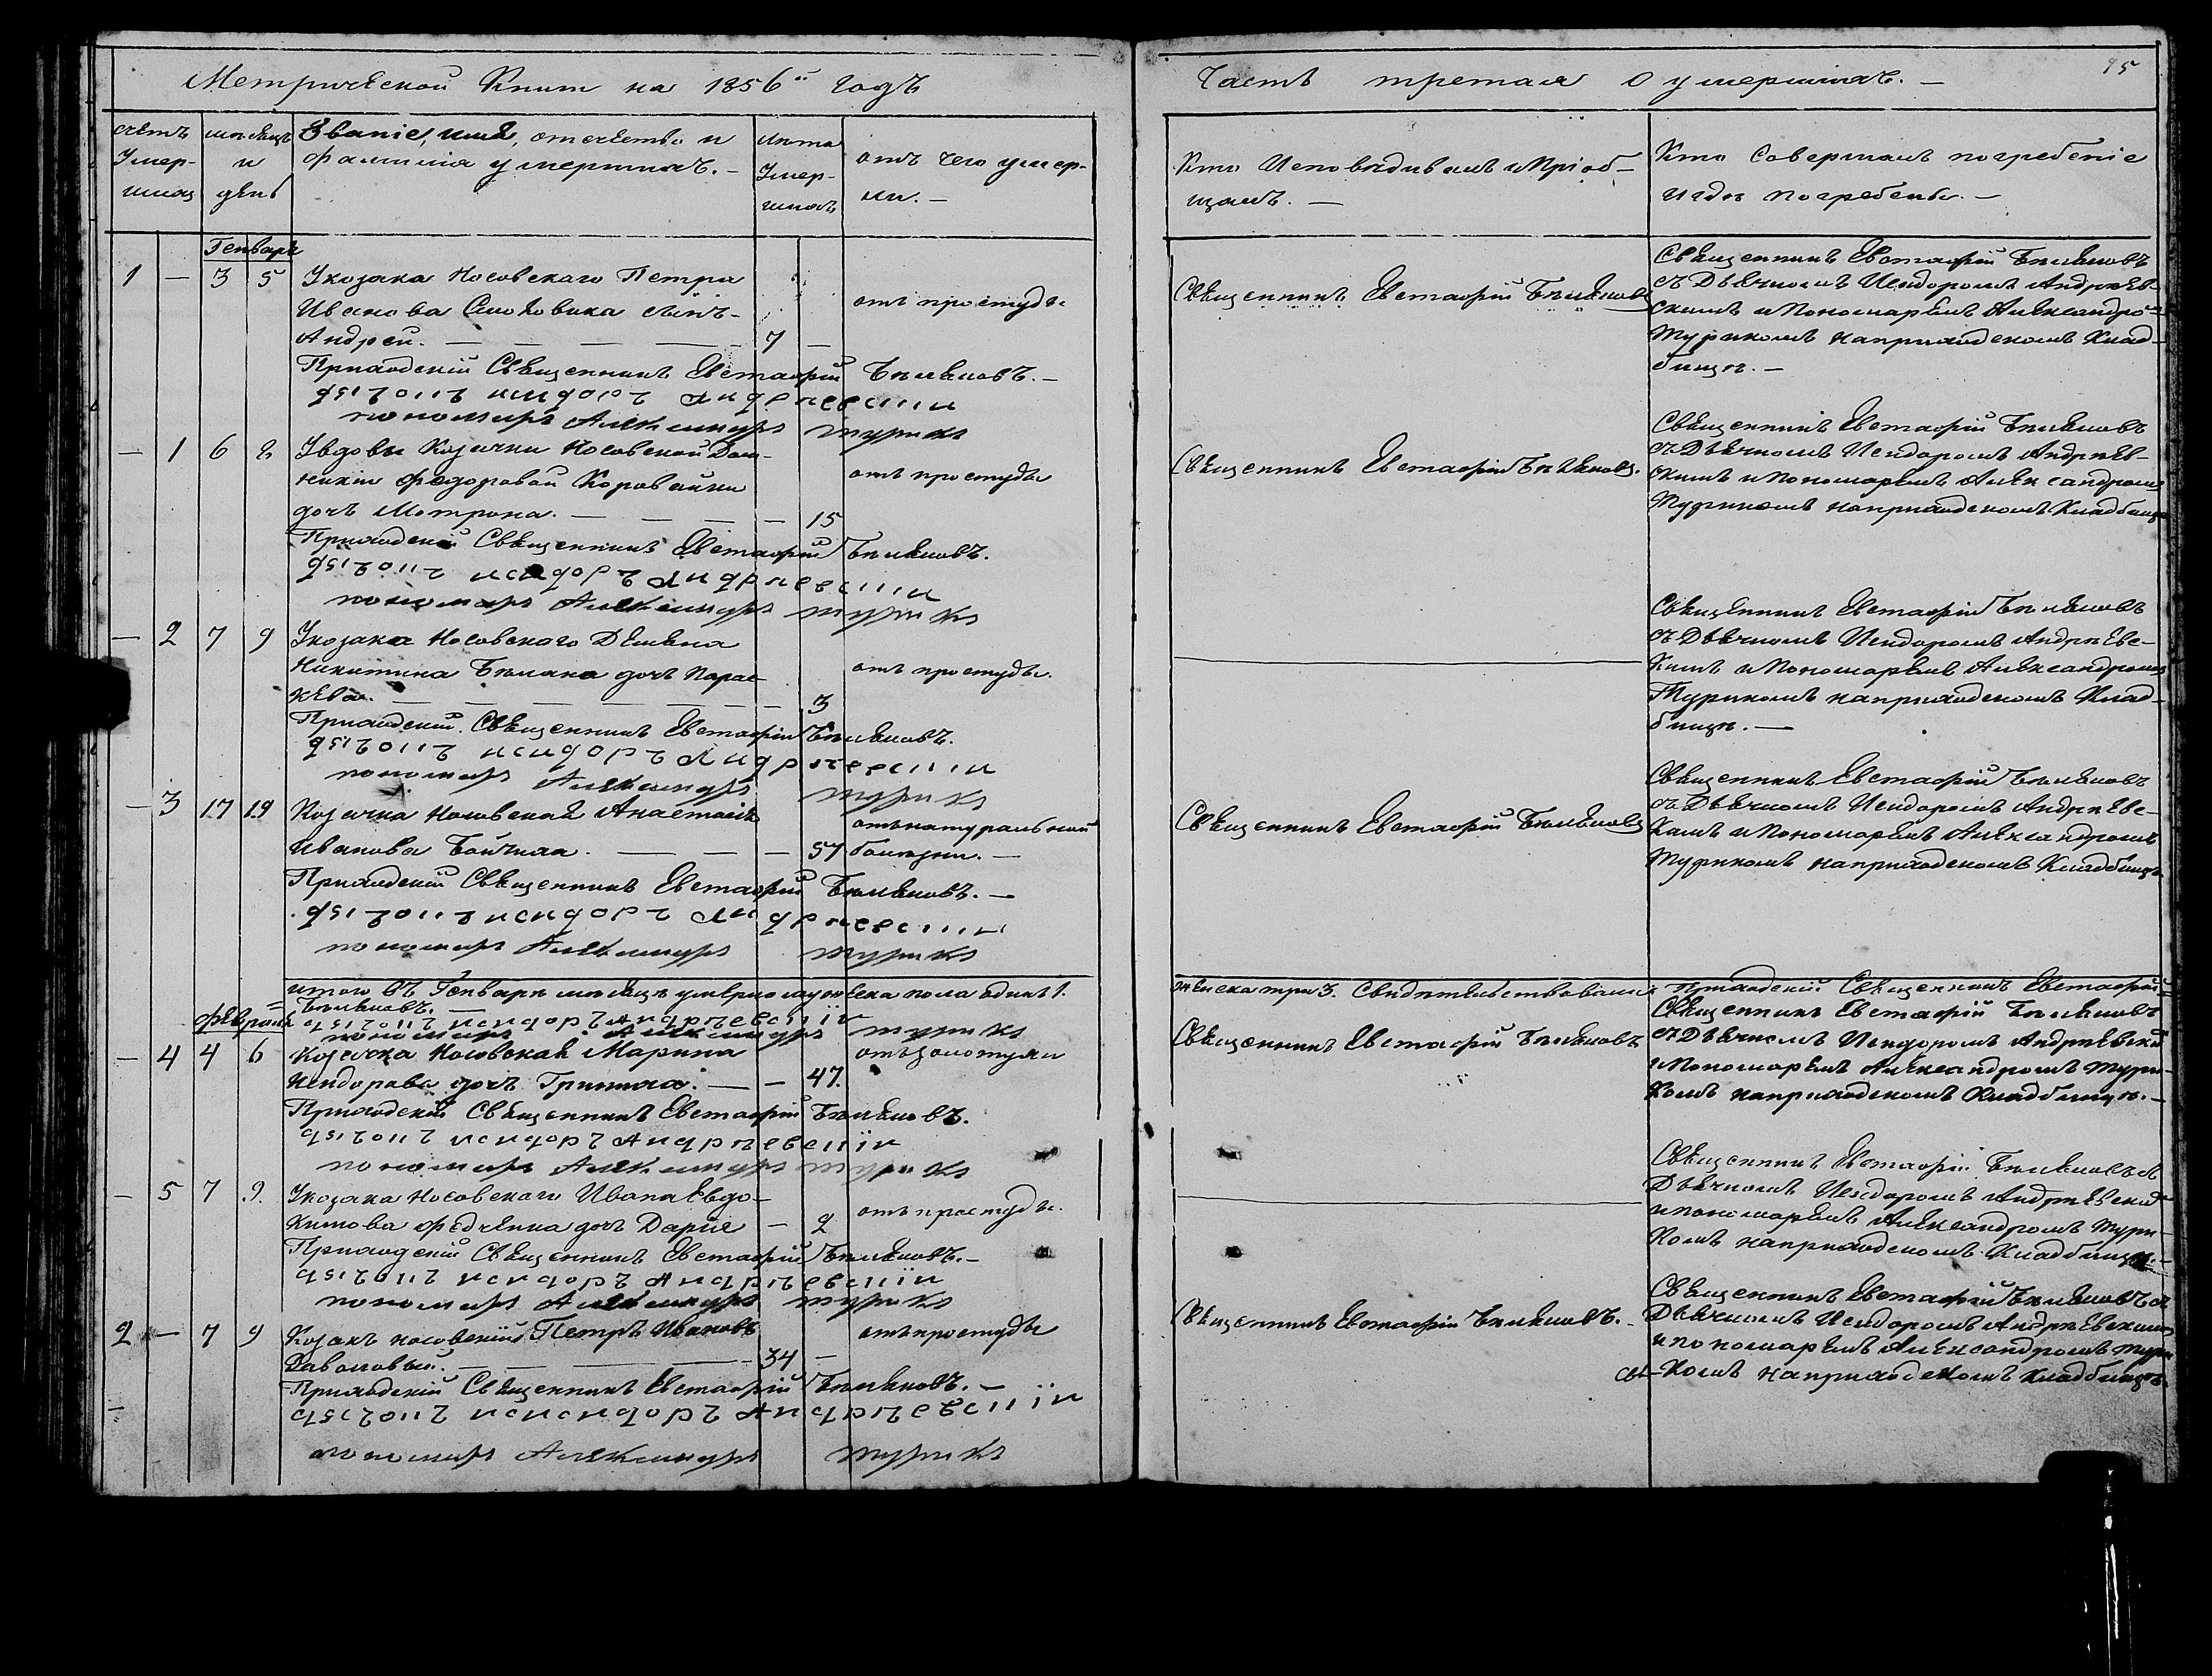 Метрической Книги на 1856й годъ
счетъ Умер- шихъ
мѣсяцъ и день
Званіе, имя, отечество и фамилія умершихъ. –
лѣта Умер- шихъ
отъ чего умер- ли. –
Генварь
1 – 3 5 Укозака Носовскаго Петра
Иванова сынъ-
отъ простуды
Андрей. – 7 –
Приходскій Священникъ Евстафій Бѣляковъ. –
дьячокъ исидоръ Андріевскій
пономарь Александръ туринъ
– 1 6 8 Увдовы Козачки Носовской Дом-
никіи Федоровой Коровайки
отъ простуды
дочь Мотрона. – 15
Приходскій Священникъ Евстафій Бѣляковъ.
дьячокъ исидоръ Андріевскій
пономарь Александръ туринъ
– 2 7 9 Укозака Носовскаго Демяна
Никитина дочь Парас-
отъ простуды.
кева. – 3
Приходскій Священникъ Евстафій Бѣляковъ.
дьячокъ исидоръ Андріевскій
пономарь Александръ туринъ
– 3 17 19 Козачка Носовская Анастасія
отъ натуральной
Иванова – 57 болѣзни. –
Приходскій Священникъ Евстафій Бѣляковъ. –
дьячокъ исидоръ Андріевскій
пономарь Александръ туринъ
итого въ Генварѣ мѣсяцѣ умерло мужеска пола одинъ 1.
Бѣляковъ. –
дьячокъ исидоръ Андріевскій
пономарь Александръ туринъ
Февраль
– 4 4 6 Козачка Носовская Марина
отъ золотухи
Исидорова дочь – 47.
Приходскій Священникъ Евстафій Бѣляковъ.
дьячокъ исидоръ Андріевскій
пономарь Александръ туринъ
– 5 7 9. Укозака Носовскаго Ивана Евдо-
отъ простуды.
кимова Федченка дочь Дарія – 2
Приходскій Священникъ Евстафій Бѣляковъ. –
дьячокъ исидоръ Андріевскій
пономарь Александръ туринъ
2 – 7 9 Козакъ носовскій Петръ Ивановъ
отъ простуды
– 34 –
Приходскій Священникъ Евстафій Бѣляковъ. –
дьячокъ Андріевскій
пономарь Александръ туринъ
Часть третая о умершихъ. –
Кто Исповѣдывалъ и Пріоб-
щалъ. –
Кто Совершалъ погребеніе
и гдѣ погребены. –
Священникъ Евстафій Бѣляковъ
Священникъ Евстафій Бѣляковъ
съ Дьячкомъ Исидоромъ Андріев-
скимъ и Пономаремъ Александро-
Туриномъ наприходскомъ Клад-
бищѣ. –
Священникъ Евстафій Бѣляковъ.
Священникъ Евстафій Бѣляковъ
съ Дьячкомъ Исидоромъ Андріев-
скимъ и Пономаремъ Александромъ
Туриномъ наприходскомъ Кладбищѣ
Священникъ Евстафій Бѣляковъ
съ Дьячкомъ Исидоромъ Андріевс-
кимъ и Пономаремъ Александромъ
Туриномъ наприходскомъ Клад-
бищѣ. –
Священникъ Евстафій Бѣляковъ
Священникъ Евстафій Бѣляковъ
съ Дьячкомъ Исидоромъ Андріевс-
кимъ и Пономаремъ Александромъ
Туриномъ наприходскомъ Кладбищѣ.
женска три 3. Свидѣтельствовали Приходскій Священникъ Евстафій
Священникъ Евстафій Бѣляковъ
Священникъ Евстафій Бѣляковъ
съ Дьячкомъ Исидоромъ Андріевскимъ
и Пономаремъ Александромъ Тури-
номъ наприходскомъ Кладбищѣ. –
Священникъ Евстафій Бѣляковъ съ
Дьячкомъ Исидоромъ Андріевскимъ
и пономаремъ Александромъ Тури-
номъ наприходскомъ Кладбищѣ. –
Священникъ Евстафій Бѣляковъ. –
Священникъ Евстафій Бѣляковъ съ
Дьячкомъ Исидоромъ Андріевскимъ
и пономаремъ Александромъ Тури
номъ наприходскомъ кладбищѣ.